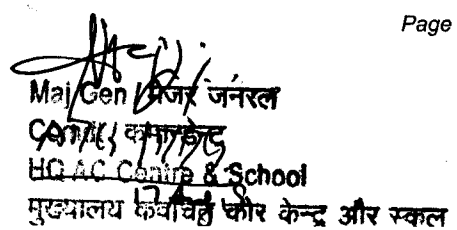 Page
Maj Gen / मेजर जनरल
कमान्डेन्ट
HQ AC Centre & School
मुख्यालय कवचित कोर केन्द्र और स्कूल